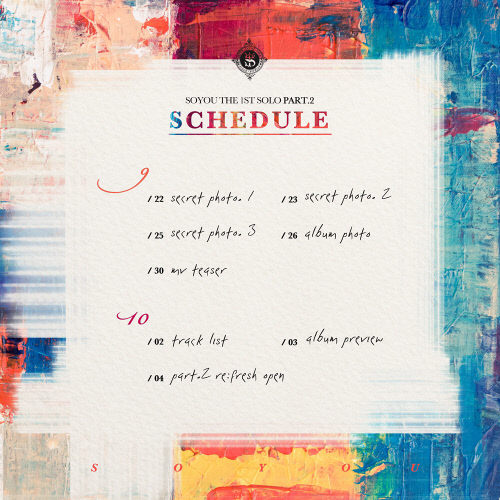 SOYOU THE 1ST SOLO PART.2
SCHEDULE
9
/ 22 secret photo. 1 / 23 secret photo. 2
/ 25 secret photo. 3 / 26 album photo
/ 30 mv teaser
10
/ 02 track list / 03 album preview
/ 04 part.2 re:fresh open
S O Y O U